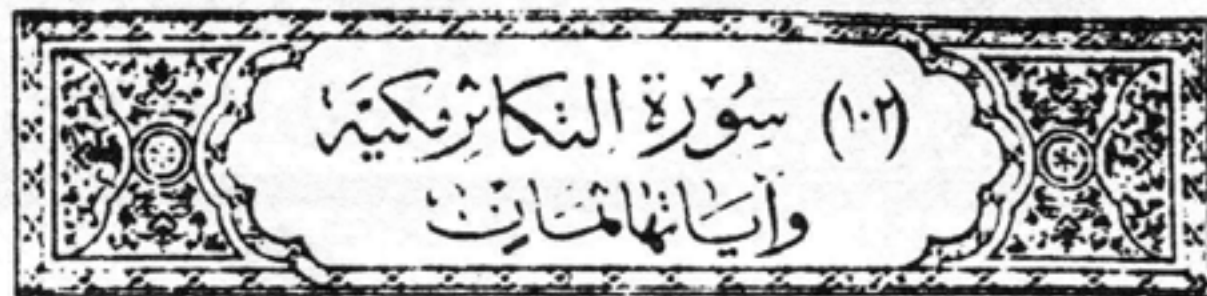 (١٠٢) سُورَة التكاثر مكيَّة
وَآيَاتها ثمَانِ